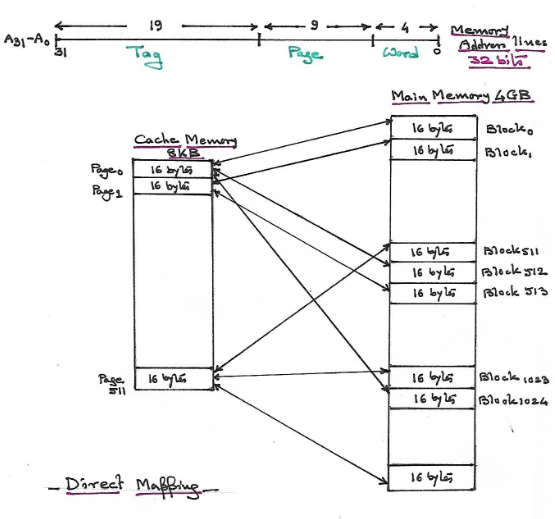 19 9 4
A31-A0 31 Tag Page Word 0
Memory
Address lines
32 bits
Main Memory 4GB
Cache Memory
8KB
Page0 16 bytes
Page1 16 bytes
Page
511 16 bytes
16 bytes Block0
16 bytes Block1
16 bytes Block511
16 bytes Block 512
16 bytes Block 513
16 bytes Block1023
16 bytes Block1024
16 bytes
- Direct Mapping -